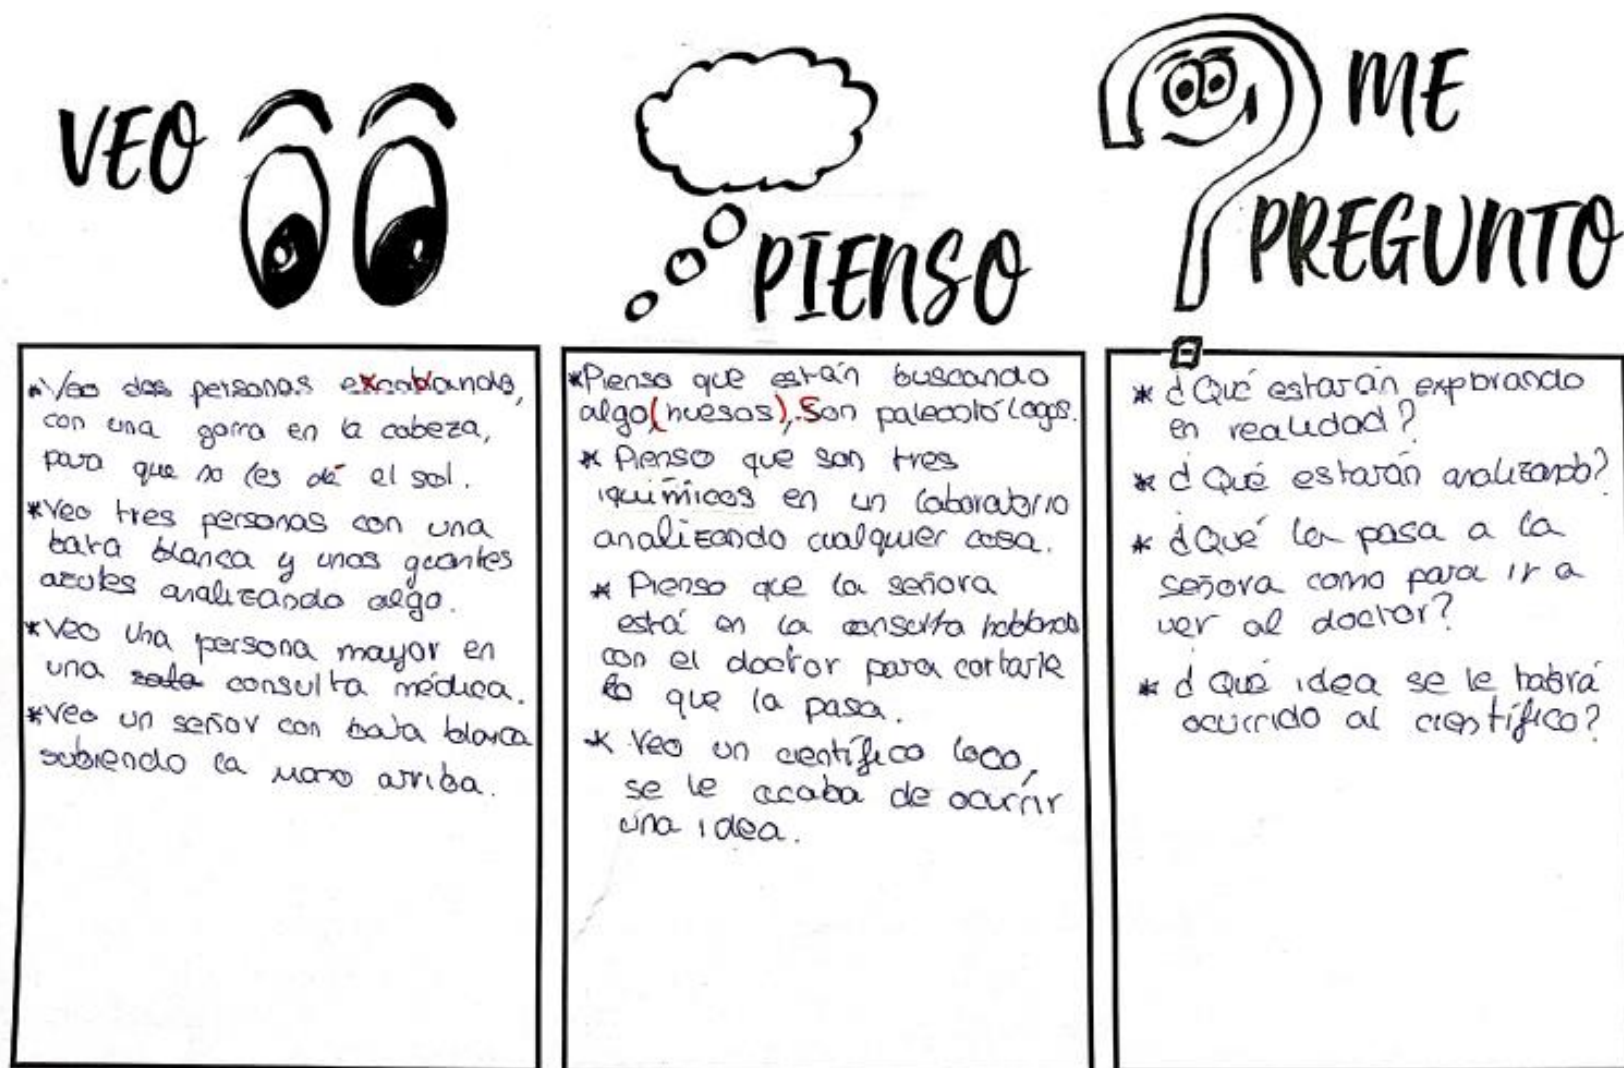 VEO
* Veo dos personas excabando,
con una gorra en la cabeza,
para que no les dé el sol.
* Veo tres personas con una
bata blanca y unos guantes
azules analizando algo.
* Veo una persona mayor en
una sala consulta médica.
* Veo un señor con bata blanca
subiendo la mano arriba.
PIENSO
* Pienso que están buscando
algo (huesos), Son paleontólogos.
* Pienso que son tres
químicos en un laboratorio
analizando cualquier cosa.
* Pienso que la señora
está en la consulta hablando
con el doctor para contarle
lo que la pasa.
* Veo un científico loco,
se le acaba de ocurrir
una idea.
ME
PREGUNTO
* ¿Qué estarán explorando
en realidad?
* ¿Qué estarán analizando?
* ¿Qué la pasa a la
señora como para ir a
ver al doctor?
* ¿Qué idea se le habrá
ocurrido al científico?